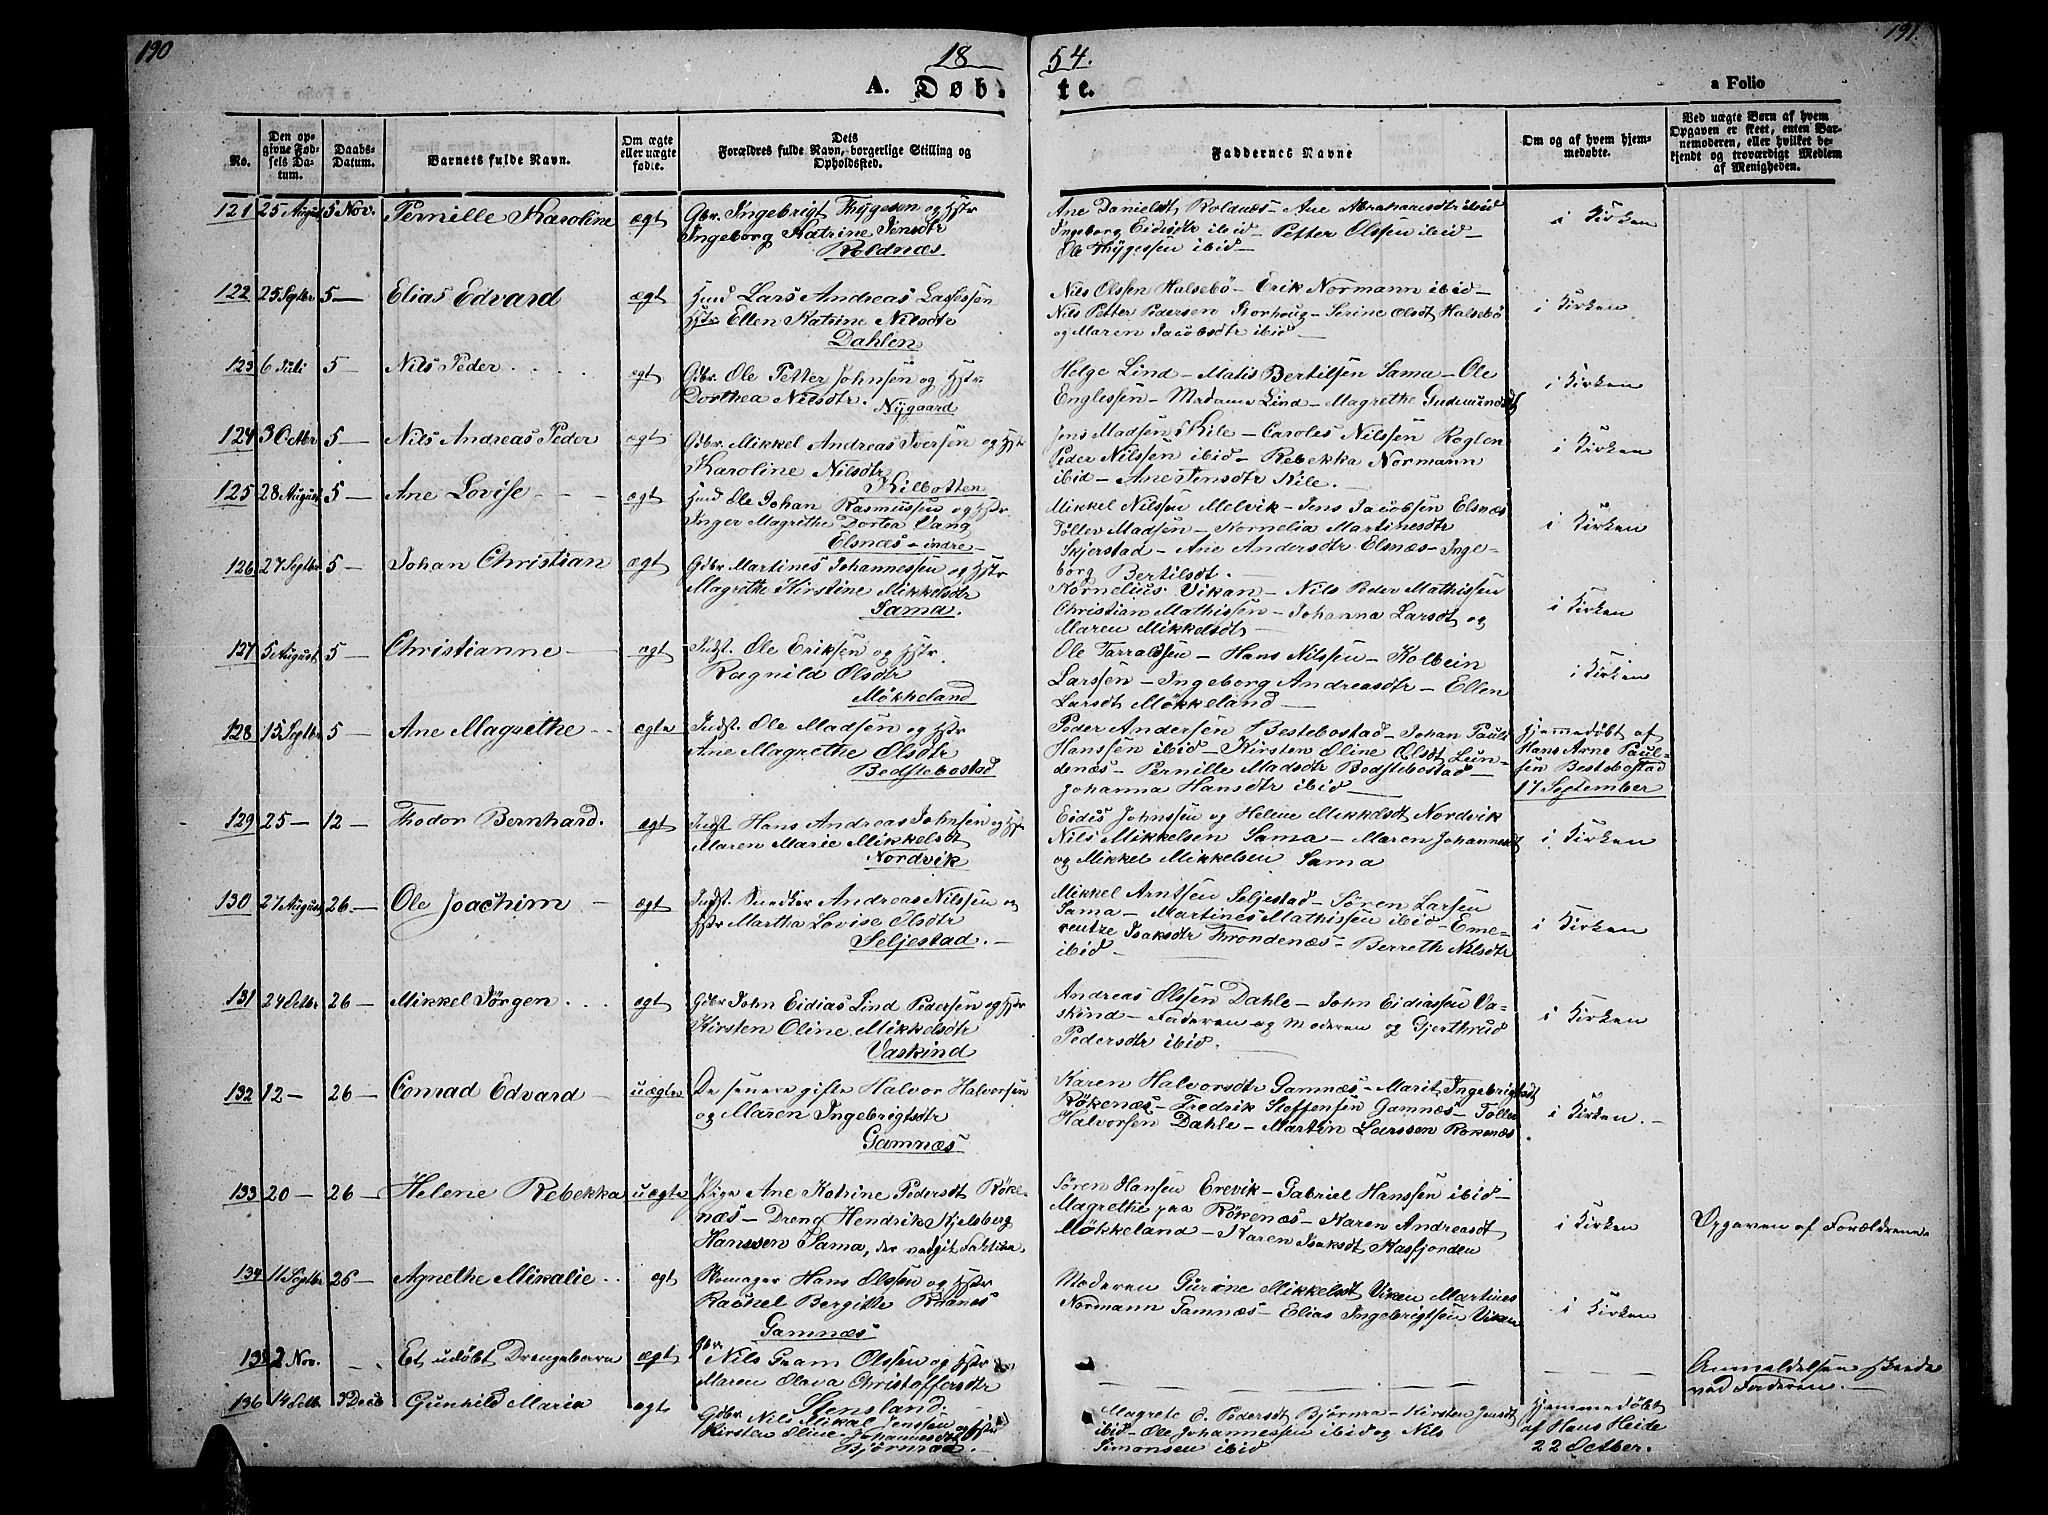 190
18
54.
191.
A. Døb-
te.
a Folio
No.
Den op-
givne Fød-
sels Da-
tum.
Daabs-
Datum.
Barnets fulde Navn.
Om ægte
eller uægte
fødte.
Dets
Forældres fulde Navn, borgerlige Stilling og
Opholdssted.
Faddernes Navne
Om og af hvem hjem-
medøbte.
Ved uægte Børn af hvem
Opgaven er skeet, enten Bar-
nemoderen, eller hvilket be-
kjendt og troværdigt Medlem
af Menigheden.
121 25 August 5 Nov. Pernille Karoline ægt
Gbr. Ingebrigt Thygesen og Hstr
Ingeborg Katrine Jensdtr
Roldnæs
Ane Danielsdt Roldnæs - Ane Abrahamsdtr ibid
Ingeborg Eidisdtr ibid - Petter Olssen ibid -
Ole Thygessen ibid -
i Kirken
122 25 Septbr 5 - Elias Edvard ægt
Hmd Lars Andreas Lassessen
Hstr Ellen Katrine Nilsdtr
Dahlen
Nils Olssen Halsebö - Erik Normann ibid -
Nils Petter Pedersen Storhoug - Serine Olsdt Halsebö
og Maren Jacobsdtr ibid -
i Kirken
123 6 Juli 5 - Nils Peder ægt
Gbr. Ole Petter Johnsen og Hstr
Dorthea Nilsdtr. Nygaard
Helge Lind - Matis Bertilsen Sama - Ole
Englessen - Madame Lind - Magrethe Gudmundsdt
i Kirken
124 3 Octbr 5 - Nils Andreas Peder ægt
Gbr. Mikkel Andreas Iversen og Hstr
Karoline Nilsdtr
Kilbotten
Jens Madsen Kile - Caroles Nilssen Roglen
Peder Nilssen ibid - Rebekka Normann
ibid - Ane Jensdtr Kile.
i Kirken
125 28 August 5 - Ane Lovise ægt
Hmd Ole Johan Rasmussen og Hstr
Inger Magrethe Dortea Vang
Elsnæs - indre -
Mikkel Nilssen Melvik - Jens Jacobsen Elsnæs
Töllev Madsen - Kornelia Martinesdtr
Skjerstad - Ane Andersdtr Elsnæs - Inge-
borg Bertilsdt.
i Kirken
126 27 Septbr 5 - Johan Christian ægt
Gdbr Martines Johannessen og Hstr
Magrethe Kirstine Mikkelsdtr
Sama.
Kornelius Vikan - Nils Peder Mathissen
Christian Mathissen - Johanna Larsdt og
Maren Mikkelsdt -
i Kirken
127 5 August 5 - Christianne ægt
Indst. Ole Eriksen og Hstr.
Ragnild Olsdtr
Møkkeland
Ole Tarraldsen - Hans Nilssen - Kolbein
Larssen - Ingeborg Andreasdtr - Ellen
Larsdt Møkkeland -
i Kirken
128 15 Septbr 5 - Ane Magrethe ægte
Indst. Ole Madsen og Hstr
Ane Magrethe Olsdtr
Bedstebostad
Peder Andersen Bestebostad - Johan Paul
Hanssen ibid - Kirsten Oline Olsdt Lun-
denæs - Pernille Madsdtr Bedstebostad -
Johanna Hansdtr ibid
Hjemmedøbt af
Hans Arne Paul-
sen Bestebostad
17 September
129 25 - 12 - Thodor Bernhard. ægt
Indst Hans Andreas Johnsen og Hstr
Maren Marie Mikkelsdt
Nordvik
Eidis Johnssen og Helene Mikkelsdt Nordvik
Nils Mikkelsen Sama - Maren Johannesdt
og Mikkel Mikkelsen Sama
i Kirken
130 27 August 26 - Ole Joachim ægt
Indst. Snedker Andreas Nilssen og
Hstr Martha Lovise Olsdtr
Seljestad. -
Mikkel Arntsen Seljestad - Sören Larsen
Sama - Martines Mathissen ibid - Eme-
rentze Isaksdtr Trondenæs - Berreth Nilsdtr
ibid -
i Kirken
131 24 Octbr 26 - Mikkel Jörgen ægt
Gdbr John Eidias Lind Pedersen og Hstr
Kirsten Oline Mikkelsdtr
Vaskind
Andreas Olssen Dahle - John Eidiassen Va-
skind - Faderen og Moderen og Gjerthrud
Pedersdtr ibid.
i Kirken
132 12 - 26 - Conrad Edvard uægte
De senere gifte Halvor Halvorsen
og Maren Ingebrigtsdtr
Gamnæs
Karen Halvorsdtr Gamnæs - Marit Ingebrigtsdt
Rökenæs - Fredrik Stoffensen Gamnæs - Tollev
Halvorsen Dahle - Martin Larssen Rokenæs
i Kirken. -
133 20 - 26 - Helene Rebekka uægte
Pige Ane Katrine Pedersdt Röke-
næs - Dreng Hendrik Kjelsberg
Hanssen Sama,
Sören Hansen Erevik - Gabriel Hanssen ibid -
Magrethe paa Rökenæs - Karen Andreasdt
Møkkeland - Karen Isaksdt Kasfjorden
i Kirken
Opgaven af Forældrene
134 11 Septbr 26 - Agnethe Mikalie ægt
Skomager Hans Olssen og Hstr
Rachel Bergitte
Gamnæs
Moderen Gurine Mikkelsdt Viken Martines
Normann Gamnæs - Elias Ingebrigtsen Viken
i Kirken
135 2 Nov. Et udøbt Drengebarn ægt
Gbr.
Nils Gram Olssen og Hstr
Maren Olava Christoffersdtr
Stensland.
Anmeldelsen skeede
ved Faderen. -
136 14 Octb. 3 Decb Gunhild Marie ægt
Gdbr. Nils Mikal Jenssen og Hstr
Kirsten Oline Johannesdtr
Bjørnraa. -
Magrete E. Pedersdt Bjørnra - Kirsten Jensdt
ibid - Ole Johannessen ibid og Nils
Simonsen ibid
Hjemmedøbt
af Hans Heide
22 Octber.